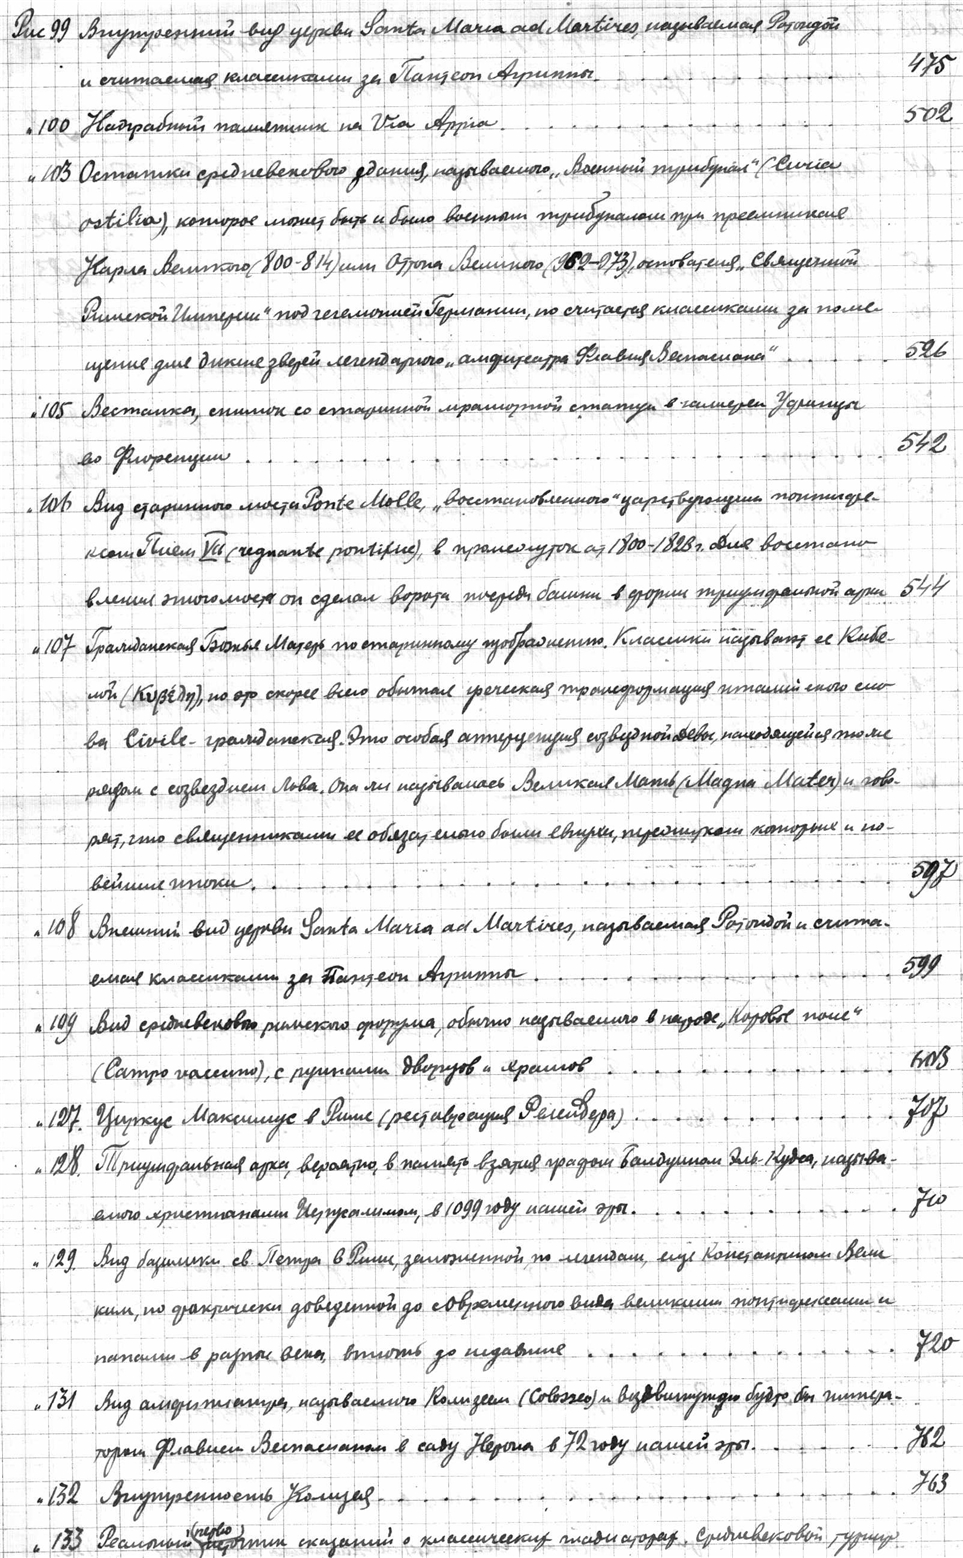 Рис 99 Внутренний вид церкви Santa Maria ad Martires, называемая Ротондой
и считаемая классиками за Пантеон Агриппы . . . . . . . . . . 475
„ 100 Надгробный памятник на Via Appia . . . . . . . . . . . . . . 502
„ 103 Остатки средневекового здания, называемого „Военный трибунал“ (Curia
ostilia), которое может быть и было военным трибуналом при преемниках
Карла Великого (800-814) или Оттона Великого (962-973), основателя „Священной
Римской Империи“ под гегемонией Германии, но считается классиками за поме-
щение для диких зверей легендарного „амфитеатра Флавия Веспасиана“ . . . . 526
„ 105 Весталка, снимок со старинной мраморной статуи в галлереи Уффици
во Флоренции . . . . . . . . . . . . . . . . . . . . . . . 542
„ 106 Вид старинного моста Ponte Molle, „восстановленного“ царствующим понтифе-
ксом Пием VII (regnante pontifice), в промежуток от 1800-1823 г. Для восстано
вления этого моста он сделал ворота посреди башни в форме триумфальной арки 544
„ 107 Гражданская Божья Матерь по старинному изображению. Классики называют ее Кибе-
лой (Κυβέλη), но это скорее всего обычная греческая трансформация италийского сло-
ва Civile - гражданская. Это особая аттерцепция созвездной Девы, находящейся тоже
рядом с созвездием Льва. Она же называлась Великая Мать (Magna Mater) и гово-
рят, что священниками ее обязательно были евнухи, пережитком которых и но-
вейшие иноки . . . . . . . . . . . . . . . . . . . . . . . 597
„ 108 Внешний вид церкви Santa Maria ad Martires, называемая Ротондой и счита-
емая классиками за Пантеон Агриппы . . . . . . . . . . . . 599
„ 109 Вид средневекового римского форума, обычно называемого в народе „Коровье поле“
(Campo vaccino), с руинами дворцов и храмов . . . . . . . . . . 603
„ 127. Циркус Максимус в Риме (реставрация Регендера) . . . . . . . . . 707
„ 128. Триумфальная арка, вероятно, в память взятия графом Балдуином Эль-Кудса, называ-
емого христианами Иерусалимом, в 1099 году нашей эры . . . . . . . . 710
„ 129. Вид базилики св. Петра в Риме, заложенной, по легендам, еще Константином Вели
ким, но фактически доведенной до современного вида великими понтифексами и
папами в разные века, вплоть до недавних . . . . . . . . . . . . 720
„ 131 Вид амфитеатра, называемого Колизеем (Coloseo) и воздвигнутого будто бы импера-
тором Флавием Веспасианом в саду Нерона в 72 году нашей эры . . . . . 762
„ 132 Внутренность Колизея . . . . . . . . . . . . . . . . . . . . 763
„ 133 Реальный (перво) источник сказаний о классических гладиаторах. Средневековой турнир